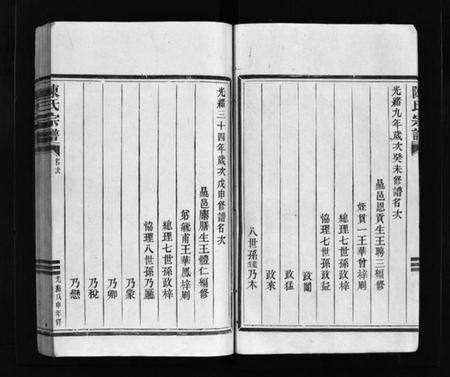 陳氏宗譜
光緒九年歲次癸未修譜名次
邑恩貢生王聘三編修
姪貢一王華曾梓刷
總理七世孫政梓
協理七世孫政
政閣
政猛
政來
八世孫 乃木
光緒三十四年歲次戊申修譜名次
邑廩膳生王體仁編修
弟 甫王華鳳梓刷
總理七世孫政梓
協理八世孫乃
乃象
乃卿
乃稅
乃戀
陳氏宗譜
名次
光緒戊申年修